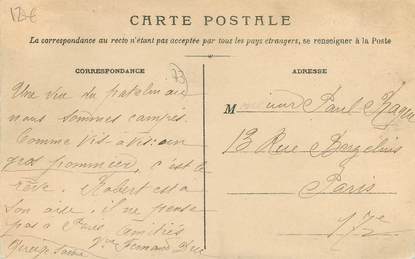 12€
CARTE POSTALE
La correspondance au recto n'étant pas acceptée par tous les pays étrangers, se renseigner à la Poste
CORRESPONDANCE
73
Une vue du patelin où
nous sommes campés.
Comme vis-à-vis: un
gros pommier, c'est le
rêve. Robert est à
son aise, il ne pense
pas à Paris. Amitiés
Fernand
ADRESSE
Monsieur Paul
13 Rue Berzélius
Paris
17e